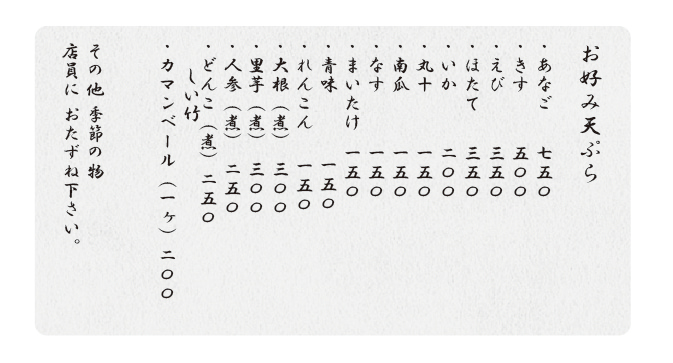 お好み天ぷら
・あなご 七五〇
・きす 五〇〇
・えび 三五〇
・ほたて 三五〇
・いか 二〇〇
・丸十 一五〇
・南瓜 一五〇
・なす 一五〇
・まいたけ 一五〇
・青味 一五〇
・れんこん 一五〇
・大根（煮） 三〇〇
・里芋（煮） 三〇〇
・人参（煮） 二五〇
・どんこ（煮） 二五〇
しい竹
・カマンベール（一ヶ） 二〇〇
その他 季節の物
店員に おたずね下さい。